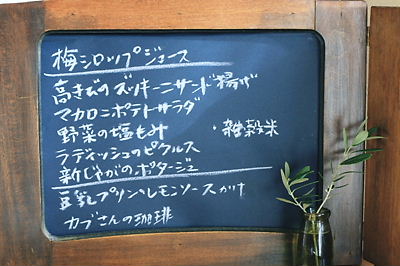 梅シロップジュース
高きびのズッキーニサンド揚げ
マカロニポテトサラダ
野菜の塩もみ
・雑穀米
ラディッシュのピクルス
新じゃがのポタージュ
豆乳プリン、レモンソースがけ
カブさんの珈琲